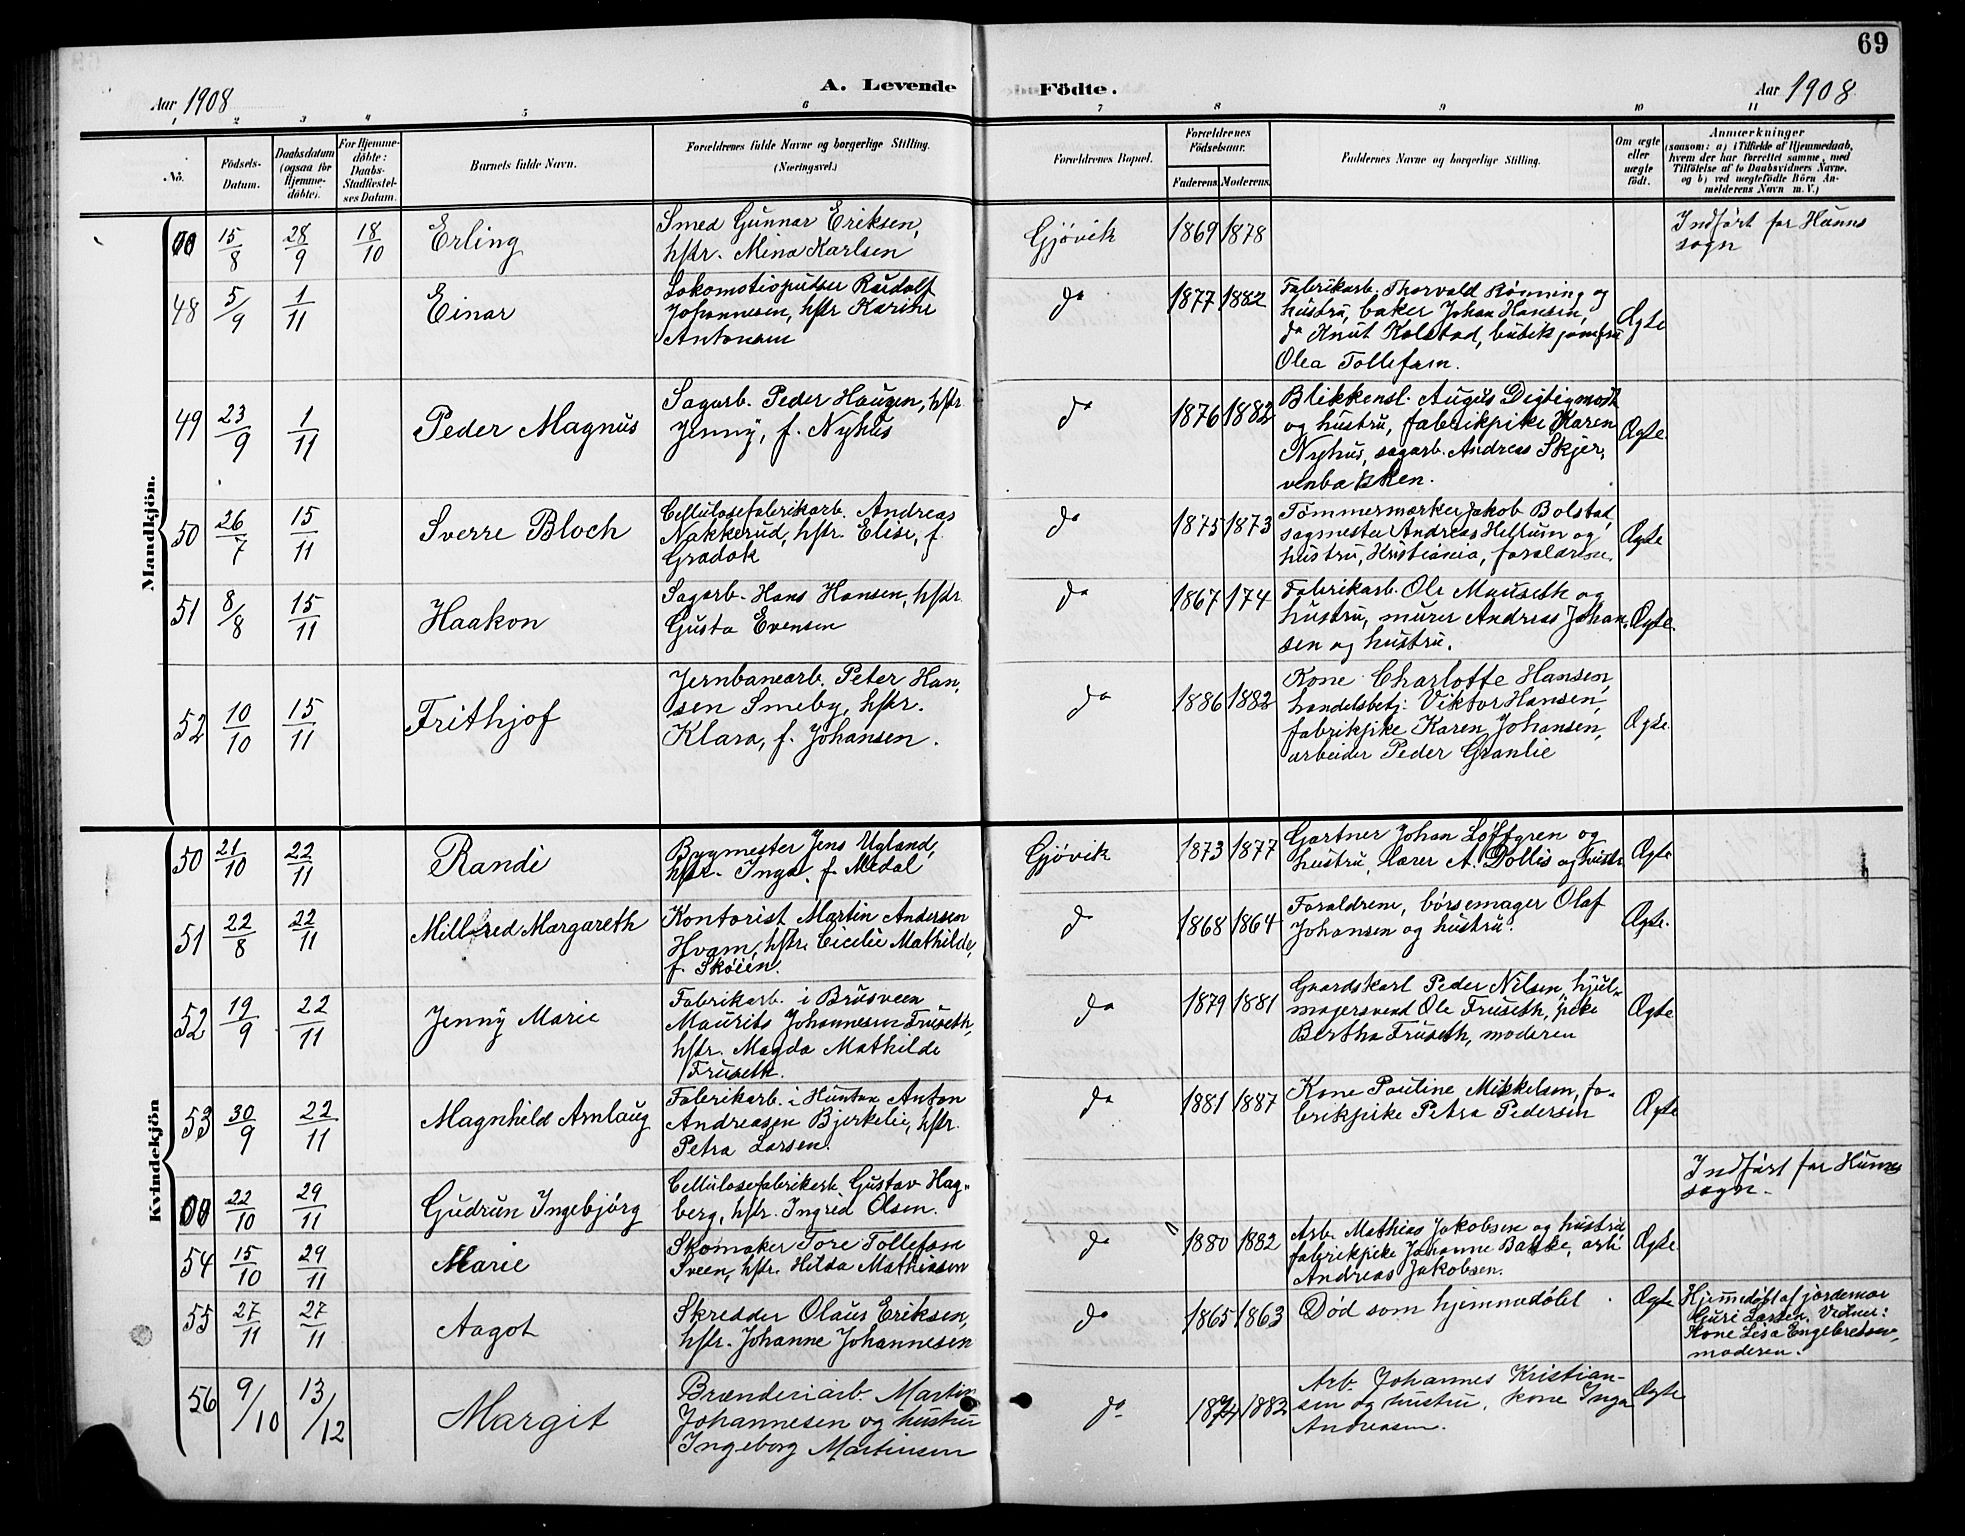 69
A. Levende Födte.
Aar 1908
Aar 1908
1 2 3 4 5 6 7 8 9 10 11
No.
Födsels-Datum.
Daabsdatum (ogsaa for Hjemme-döbte).
For Hjemme-döbte: Daabs-Stadfæstel-ses Datum.
Barnets fulde Navn.
Forældrenes fulde Navne og borgerlige Stilling. (Næringsvei.)
Forældrenes Bopæl.
Forældrenes Födselsaar.
Faderens. Moderens.
Faddernes Navne og borgerlige Stilling.
Om ægte eller uægte födt.
Anmærkninger
(saasom: a) i Tilfælde af Hjemmedaab,
hvem der har forrettet samme, med
Tilföielse af to Daabsvidners Navne.
og b) ved uægtefödte Börn An-
melderens Navn m. V.)
Mandkjön.
15/8 28/9 18/10 Erling
Smed Gunnar Eriksen,
hstr. Mina Karlsen
Gjøvik 1869 1878
Indført for Hunns
sogn
48 5/9 1/11 Einar
Lokomotivpudser Rudolf
Johannesen, hstr Karine
Antonsen
do 1877 1882
Fabrikarb. Thorvald Rønning og
hustru, baker Johan Hansen,
do Knut Kolstad, butikjomfru
Olea Tollefsen.
Ægte
49 23/9 1/11 Peder Magnus
Sagarb. Peder Haugen, hstr
Jenny, f. Nyhus
do 1876 1882
Blikkensl. August Digtigmodt
og hustru, fabrikpike Karen
Nyhus, sagarb. Andreas Skjer-
venbakken.
Ægte.
50 26/7 15/11 Sverre Bloch
Cellulosefabrikarb. Andreas
Nakkerud, hstr. Elise, f.
Gradok
do 1875 1873
Tømmermærker Jakob Bolstad,
sagmester Andreas Hellum og
hustru, Kristiania, forældrene.
Ægte
51 8/8 15/11 Haakon
Sagarb. Hans Hansen, hstr.
Gusta Evensen
do 1867 174
Fabrikarb. Ole Mauseth og
hustru, murer Andreas Johan-
sen og hustru.
Ægte.
52 10/10 15/11 Frithjof
Jernbanearb. Peter Han-
sen Smeby, hstr.
Klara, f. Johansen.
do 1886 1882
Kone Charlotte Hansen,
handelsbetj. Viktor Hansen,
fabrikpike Karen Johansen,
arbeider Peder Granlie
Ægte.
Kvindekjön
50 21/10 22/11 Randi
Bygmester Jens Ugland,
hstr. Inga, f. Medal
Gjøvik 1873 1877
Gartner Johan Løffgren og
hustru, lærer A. Dollis og hustr.
Ægte
51 22/8 22/11 Millred Margareth
Kontorist Martin Andersen
Hvam, hstr. Cicilie Mathilde,
f. Skøien.
do 1868 1864
Forældrene, børsemager Olaf
Johansen og hustru.
Ægte.
52 19/9 22/11 Jenny Marie
Fabrikarb. i Brusveen
Maurits Johannesen Fruseth,
hstr. Magda Mathilde
Fruseth.
do 1879 1881
Gaardskarl Peder Nilsen, hjul-
magersvend Ole Fruseth, pike
Bertha Fruseth, moderen
Ægte
53 30/9 22/11 Magnhild Arnlaug
Fabrikarb. i Hunton Anton
Andreasen Bjerkelie, hstr.
Petra Larsen.
do 1881 1887
Kone Pauline Mikkelsen, fa-
brikpike Petra Pedersen
Ægte
22/10 29/11 Gudrun Ingebjørg
Cellulosefabrikarb. Gustav Hag-
berg, hstr. Ingrid Olsen.
Indført for Hunns
sogn.
54 15/10 29/11 Marie
Skomaker Tore Tollefsen
Sveen, hstr. Hilda Mathiesen
do 1880 1882
Arb. Mathias Jakobsen og hustru
fabrikpike Johanne Bakke, arb
Andreas Jakobsen.
Ægte.
55 27/11 27/11 Aagot
Skredder Olaus Eriksen,
hstr. Johanne Johannesen
do 1865 1863
Død som hjemmedøbt.
Ægte
Hjemmedøbt af jordemor
Guri Larsen. Vidner:
Kone Lisa Engebretsen,
moderen.
56 9/10 13/12 Margit
Brænderiarb. Martin
Johannesen og hustru
Ingeborg Martinsen
do 1874 1882
Arb. Johannes Kristian-
sen og hustru, kone Inga
Andreasen.
Ægte